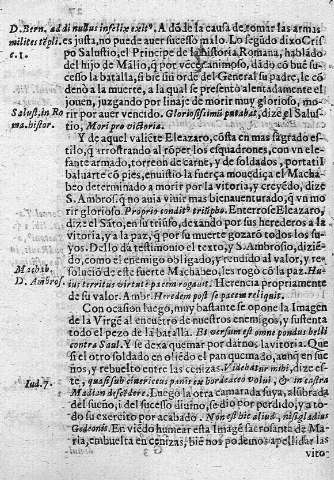 D. Bern. ad di nullus infelix exito. A dõde la causa de tomar las armas
milites tẽpli. es justa, no puede auer sucesso malo. Lo segũdo dixo Cris
c. 1. po Salustio, el Principe de la historia Romana, habládo
del hijo de Málio, q̃ por vẽcer animoso, dádo cõ bué su
cesso la batalla, sobre sin ordẽ del General su padre, le cõ
denò a la muerte, a la qual se presentò alentadamente el
jouen, juzgando por linaje de morir muy glorioso, mo-
Salust. in Ro rir por auer vencido. Gloriosissimũ putabat, dizẽ el Salus-
ma. histor. tio, Mori pro victoria.
Y de aquel valiẽte Eleazaro, cõsta cn mas sagrado es-
tilo, q̃ arrostrando al rõper los esquadrones, con vn ele-
fante armado, torreon de carne, y de soldados, portatil
baluarte cõ pies, enuistiò la fuerça mouediça el Macha-
beo determinado a morir por la vitoria, y creyẽdo, dize
S. Ambros. q̃ no auia viuir mas bienauenturado, q̃ vn mo
rir glorioso. Proprio condito triũpho. Enterrose Eleazaro,
dize el Sãto, en su triũfo, dexando por sus herederos a la
vitoria, y a la paz, q̃ por su muerte gozarõ todos los su-
yos. Dello dà testimonio el texto, y S. Ambrosio, diziẽ-
Machab. do, como el enemigo obligado, y rendido al valor, y re-
D. Ambros. solucio de este fuerte Machabeo, les rogò cõ la paz. Hu
ius territus virtute pacem rogaut. Herencia propriamente
de su valor. Ambr. Heredem post se pacem reliquit.
Con ocasion luego, muy bastante se opone la Imagen
de la Virgẽ al encuẽtro de nuestros enemigos, y sustenta
todo el pezo de la batalla. Et versum est omne pondus belli
contra Saul. Y se dexa quemar por darnos la vitoria. Que
si el otro soldado en oliẽdo el pan quemado, aunq̃ en sue
ños, y rebuelto entre las cenizas. Videbatur mihi, dize es-
Iud. 7. te, quasi sub cinericeus panis ex hordeaceo volui, & in castra
Madiam descẽdere. Luego la otra camarada suya, alsõbrada
del sueño, i del sucesso diuino, se dio por perdido, y a to-
do su exercito por acabado. Non est hic aliud, nisi gladius
Gedeonis. En viẽdo humear esta Imagẽ sacrosante de Ma-
ria, embuelta en cenizas, biẽ nos podemos apellidar las
vito-